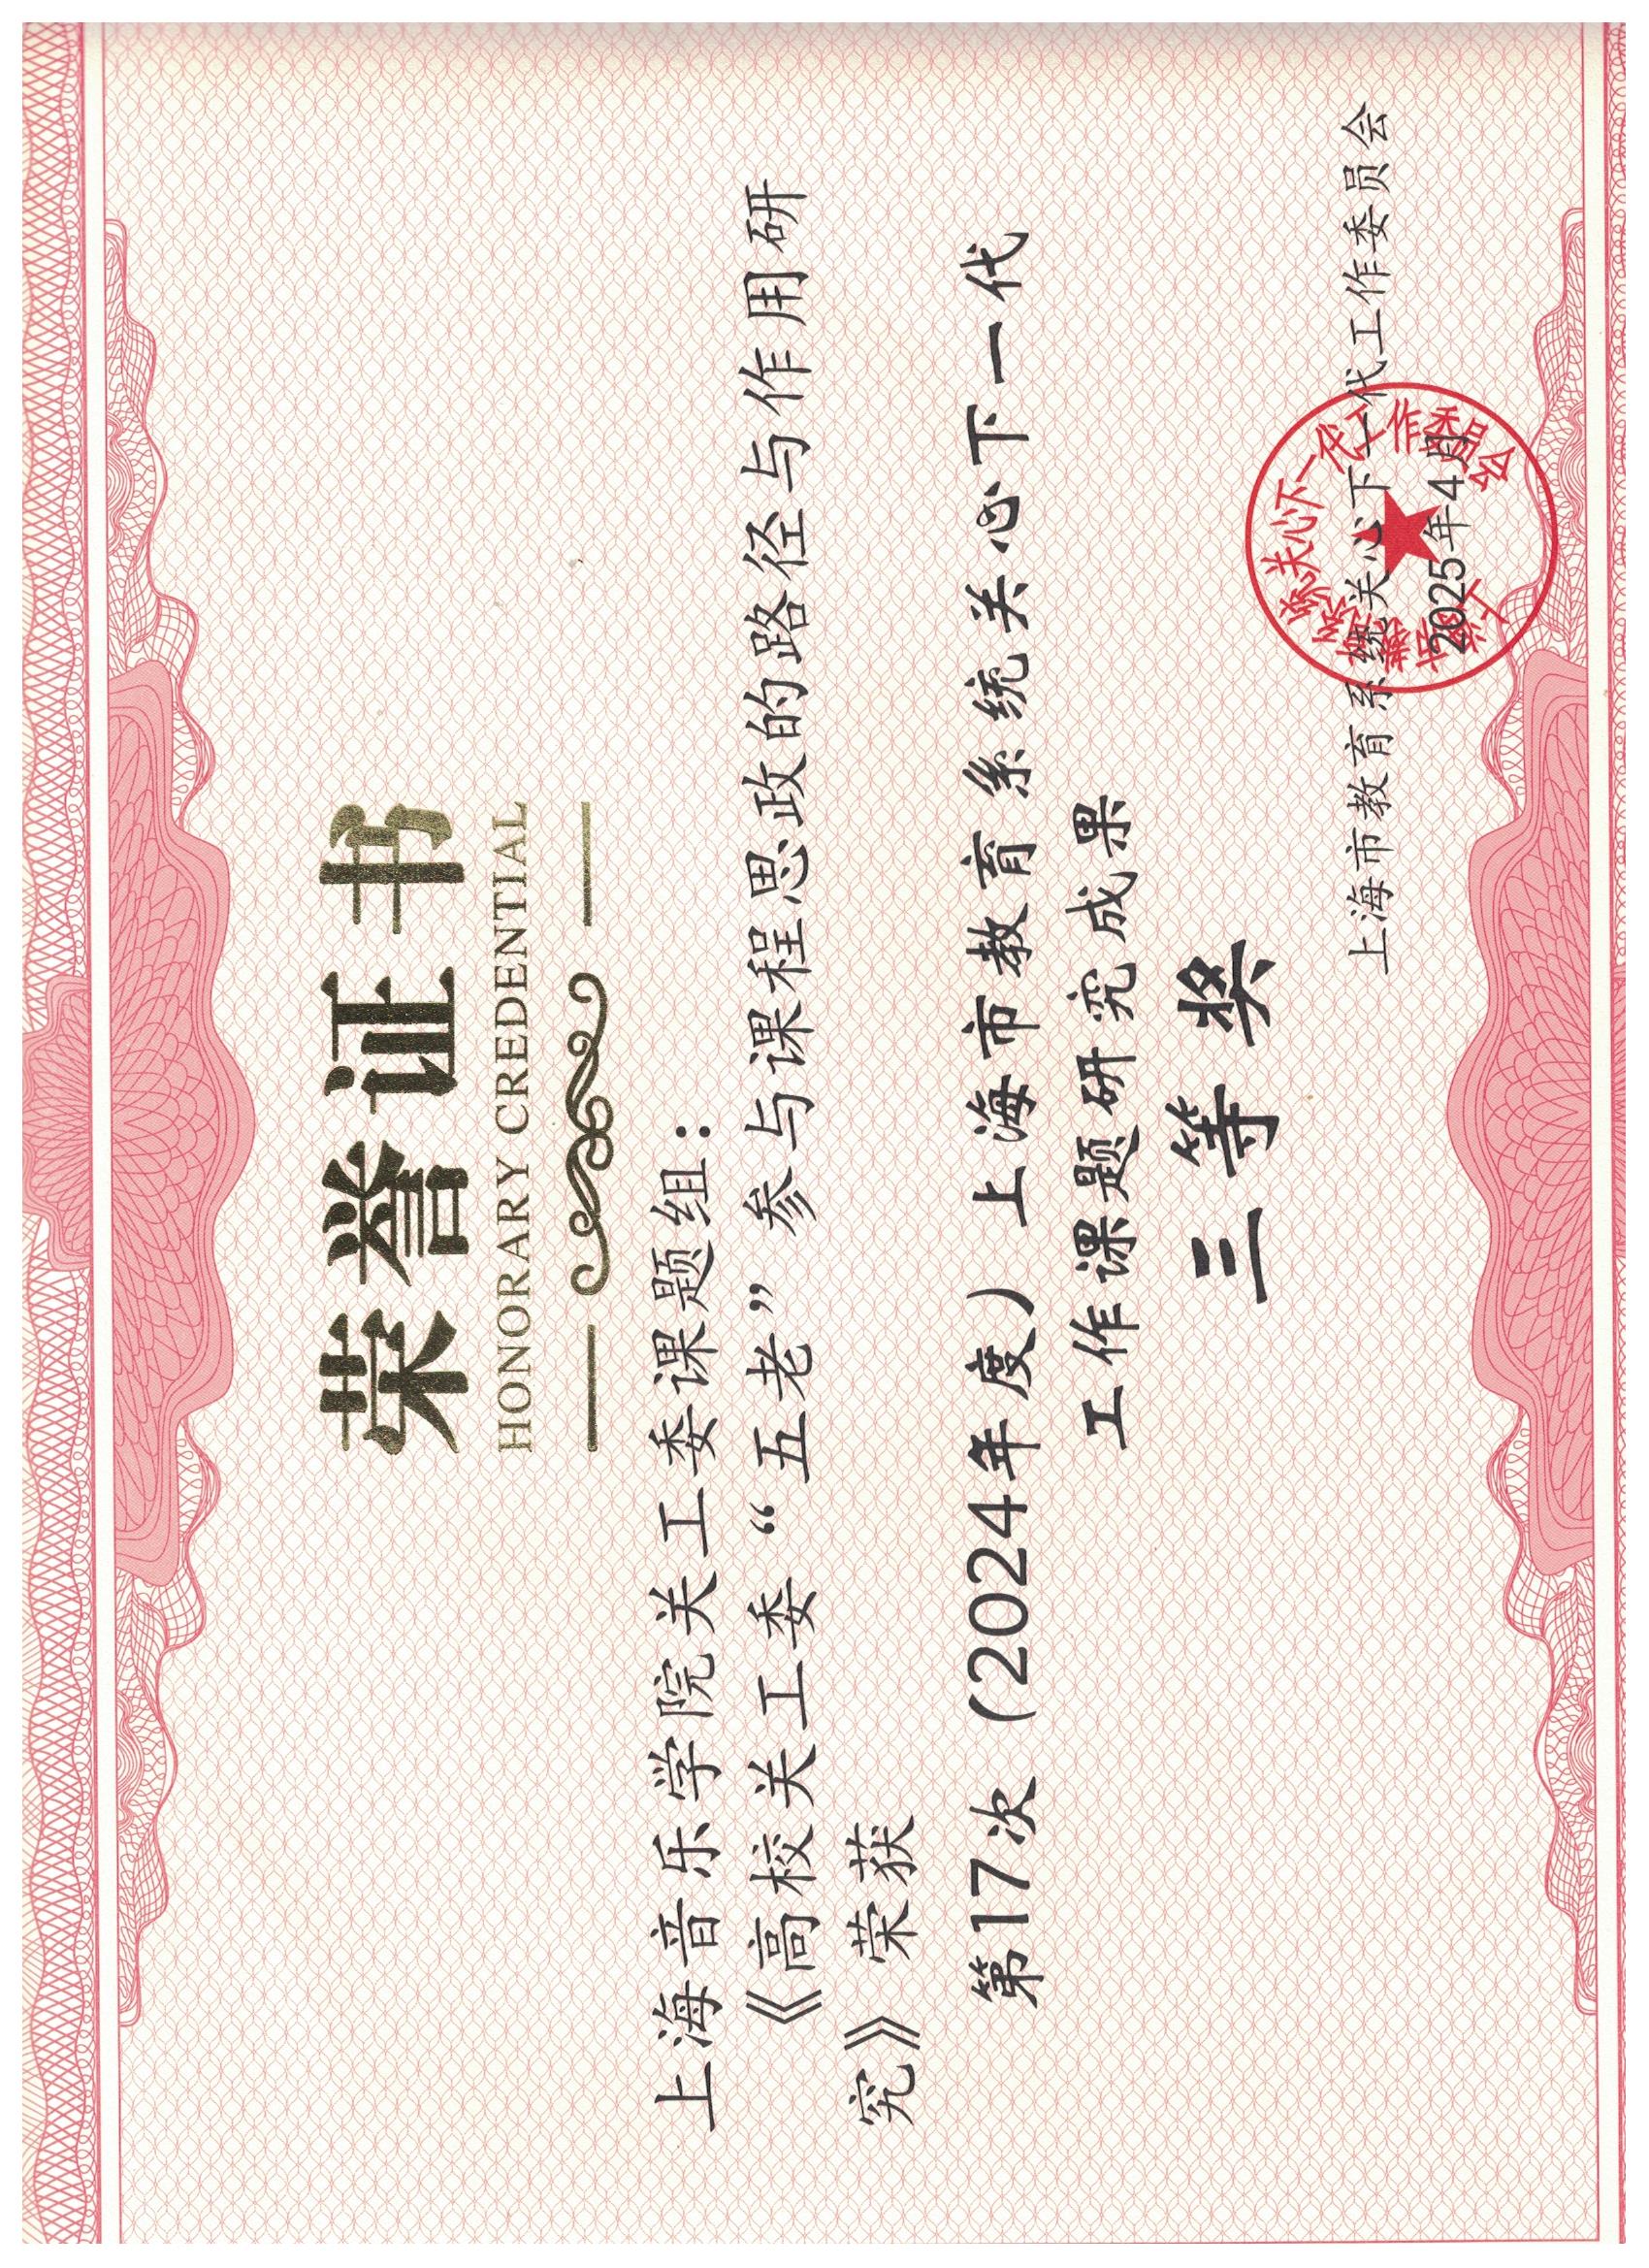 荣誉证书
HONORARY CREDENTIAL
上海音乐学院关工委课题组：
《高校关工委“五老”参与课程思政的路径与作用研
究》荣获
第17次（2024年度）上海市教育系统关心下一代
工作课题研究成果
三等奖
上海市教育系统关心下一代工作委员会
2025年4月